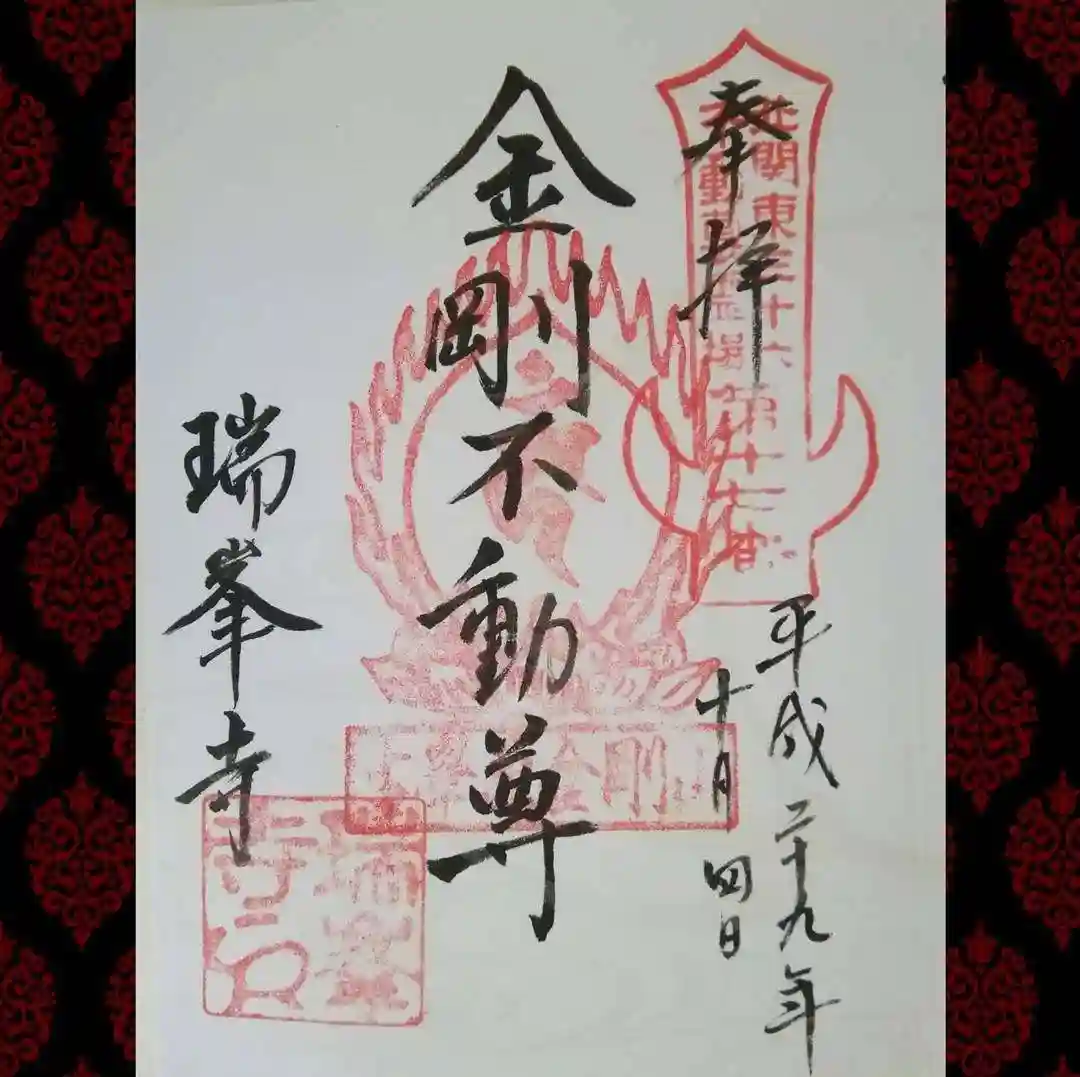 奉拝
北関東三十六
不動尊霊場第廿七番
平成二十九年
十月四日
金剛不動尊
金剛山
瑞峯寺
瑞峯
寺印